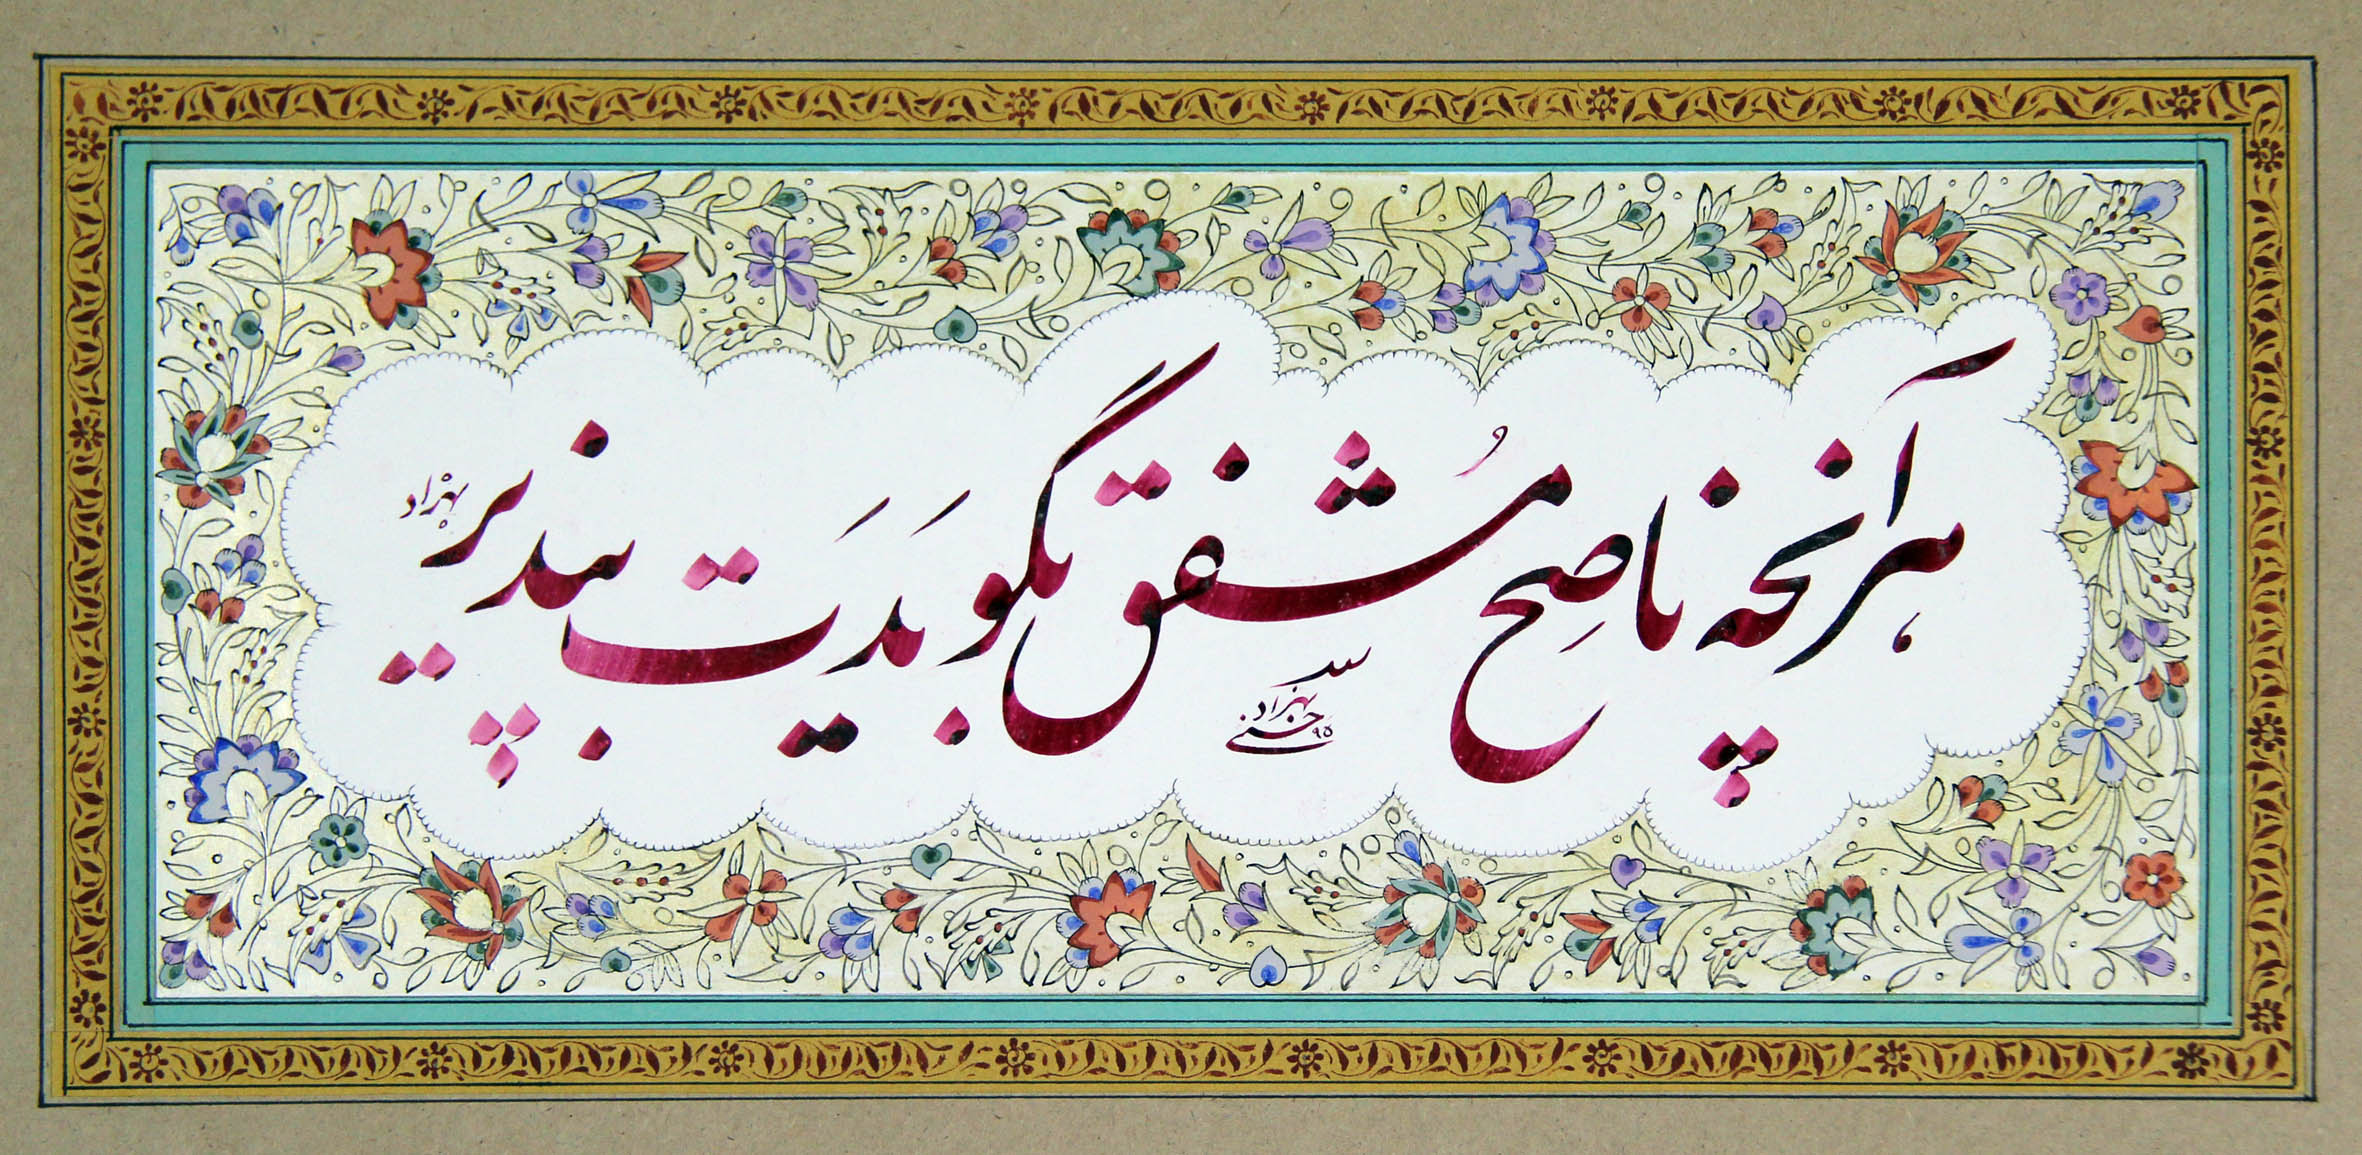 هرآنچه ناصِح مُشفق بگویَدَت بپذیر
بهزاد
سید
بهزاد
حسنی ۹۵